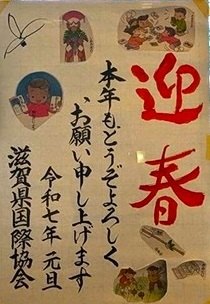 迎春
本年もどうぞよろしく
お願い申し上げます
令和七年 元旦
滋賀県国際協会